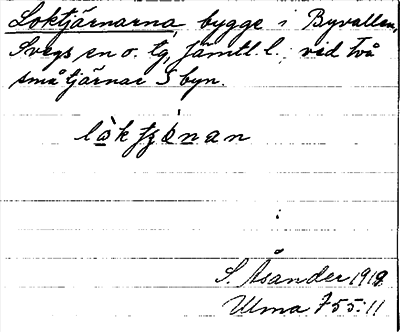 Loktjärnarna, bygge i Byvallen,
Svegs sn o. tg, Jämtl. l.; vid två
små tjärnar S byn.
lòktjǿnan
S. Åsander 1918
Ulma 755:11